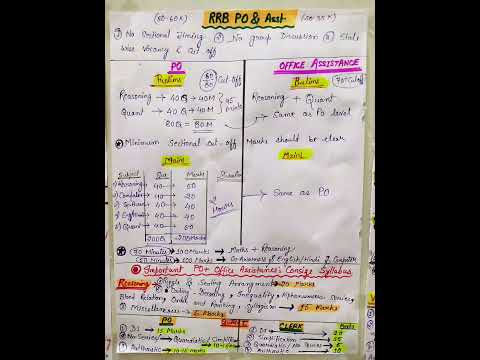 (50-60K) RRB PO & Asst. (30-35K)
① No Sectional Timing ② No group Discussion ③ State
Wise Vacancy & Cut off
PO
OFFICE ASSISTANCE
Prelims 60/80 Cut-off
Prelims 70+ Cutoff
Reasoning → 40Q → 40M
Quant → 40Q → 40M
45 minutes
80Q = 80M
Reasoning + Quant
→ Same as PO level
Minimum Sectional cut-off Marks should be clear
Main
Main
Subject Que Marks Duration
1) Reasoning → 40 → 50
2) Computer → 40 → 20
→ 40 → 40
→ 40 → 40
→ 40 → 50
2 Hours
200Q → 200 Marks
→ Same as PO
70 Minutes → 100 Marks → Maths + Reasoning
50 Minutes → 100 Marks → G. Awareness, English/Hindi & Computer
Important PO + Office Assistance: Consize Syllabus
Reasoning → Puzzle & Seating Arrangement → 20 Marks
→ Coding Decoding, Inequality, Alphanumeric Series,
Blood Relation, and Ranking, Syllogism → 15 Marks
→ Miscellaneous → 5 Marks
PO Quant CLERK
1) DI → 15 Marks
Quadratic/Simplification
3) Arithmetic → Marks
1) DI
2) Simplification
3) Quadratic
4) Arithmetic